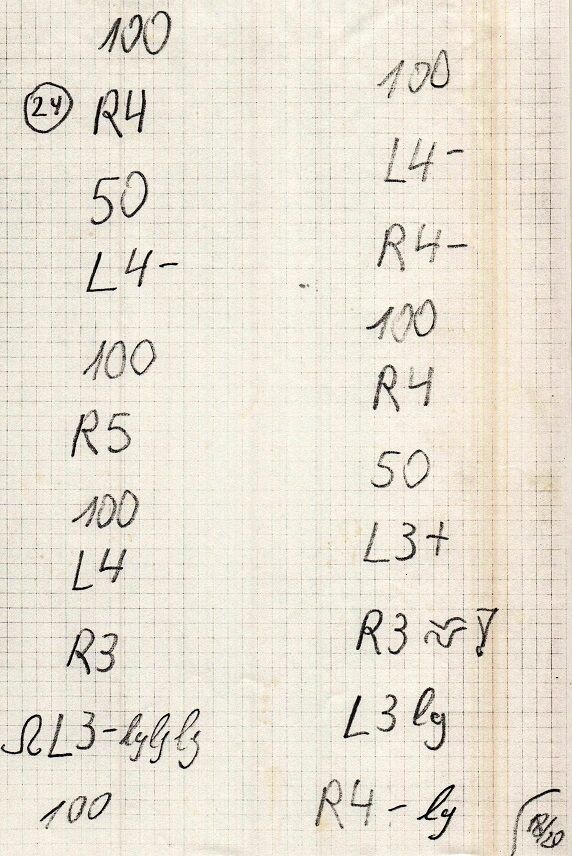 100
24 R4
50
L4-
100
R5
100
L4
R3
ΩL3-lglglg
100
100
L4-
R4-
100
R4
50
L3+
R3
L3 lg
R4-lg
18/20